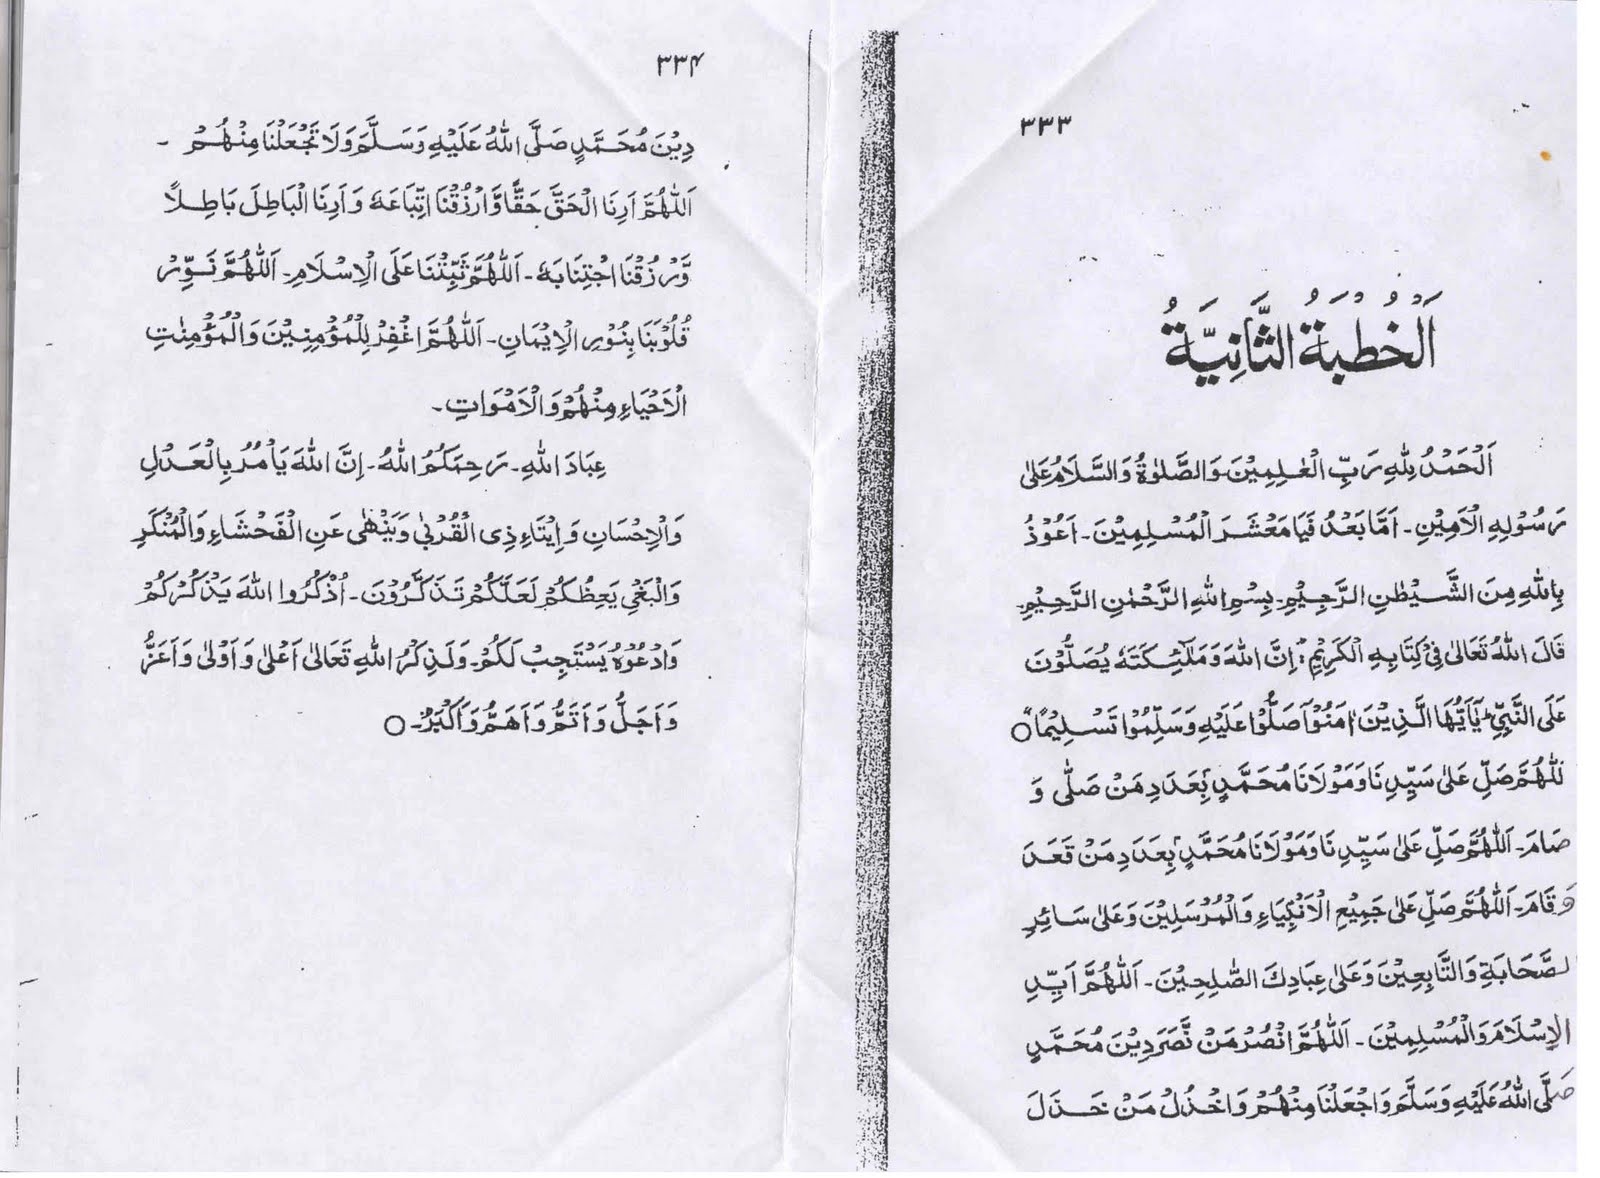 ٣٣٣
اَلْخُطْبَةُ الثَّانِيَّةُ
اَلْحَمْدُ لِلّٰهِ رَبِّ الْعٰلَمِيْنَ وَالصَّلٰوةُ وَالسَّلَامُ عَلٰى
رَسُوْلِهِ الْاَمِيْنِ۔ اَمَّا بَعْدُ فَيَا مَعْشَرَ الْمُسْلِمِيْنَ۔ اَعُوْذُ
بِاللّٰهِ مِنَ الشَّيْطٰنِ الرَّجِيْمِ۔ بِسْمِ اللّٰهِ الرَّحْمٰنِ الرَّحِيْمِ۔
قَالَ اللّٰهُ تَعَالٰى فِيْ كِتَابِهِ الْكَرِيْمِ: اِنَّ اللّٰهَ وَمَلٰٓئِكَتَهٗ يُصَلُّوْنَ
عَلَى النَّبِيِّ ؕ يٰٓاَيُّهَا الَّذِيْنَ اٰمَنُوْا صَلُّوْا عَلَيْهِ وَسَلِّمُوْا تَسْلِيْمًا ○
للّٰهُمَّ صَلِّ عَلٰى سَيِّدِنَا وَمَوْلَانَا مُحَمَّدٍ بِعَدَدِ مَنْ صَلّٰى وَ
صَامَ۔ اَللّٰهُمَّ صَلِّ عَلٰى سَيِّدِنَا وَمَوْلَانَا مُحَمَّدٍ بِعَدَدِ مَنْ قَعَدَ
وَقَامَ۔ اَللّٰهُمَّ صَلِّ عَلٰى جَمِيْعِ الْاَنْبِيَاءِ وَالْمُرْسَلِيْنَ وَعَلٰى سَائِرِ
لصَّحَابَةِ وَالتَّابِعِيْنَ وَعَلٰى عِبَادِكَ الصّٰلِحِيْنَ۔ اَللّٰهُمَّ اَيِّدِ
الْاِسْلَامَ وَالْمُسْلِمِيْنَ۔ اَللّٰهُمَّ انْصُرْ مَنْ نَّصَرَ دِيْنَ مُحَمَّدٍ
صَلَّى اللّٰهُ عَلَيْهِ وَسَلَّمَ وَاجْعَلْنَا مِنْهُمْ وَاخْذُلْ مَنْ خَذَلَ
٣٣۴
دِيْنَ مُحَمَّدٍ صَلَّى اللّٰهُ عَلَيْهِ وَسَلَّمَ وَلَا تَجْعَلْنَا مِنْهُمْ۔
اَللّٰهُمَّ اَرِنَا الْحَقَّ حَقًّا وَّارْزُقْنَا اتِّبَاعَهٗ وَاَرِنَا الْبَاطِلَ بَاطِلًا
وَّرْزُقْنَا اجْتِنَابَهٗ۔ اَللّٰهُمَّ ثَبِّتْنَا عَلَى الْاِسْلَامِ۔ اَللّٰهُمَّ نَوِّرْ
قُلُوْبَنَا بِنُوْرِ الْاِيْمَانِ۔ اَللّٰهُمَّ اغْفِرْ لِلْمُؤْمِنِيْنَ وَالْمُؤْمِنٰتِ
الْاَحْيَاءِ مِنْهُمْ وَالْاَمْوَاتِ۔
عِبَادَ اللّٰهِ۔ رَحِمَكُمُ اللّٰهُ۔ اِنَّ اللّٰهَ يَاْمُرُ بِالْعَدْلِ
وَالْاِحْسَانِ وَاِيْتَاءِ ذِى الْقُرْبٰى وَيَنْهٰى عَنِ الْفَحْشَاءِ وَالْمُنْكَرِ
وَالْبَغْيِ يَعِظُكُمْ لَعَلَّكُمْ تَذَكَّرُوْنَ۔ اُذْكُرُوا اللّٰهَ يَذْكُرْكُمْ
وَادْعُوْهُ يَسْتَجِبْ لَكُمْ۔ وَلَذِكْرُ اللّٰهِ تَعَالٰى اَعْلٰى وَاَوْلٰى وَاَعَزُّ
وَاَجَلُّ وَاَتَمُّ وَاَهَمُّ وَاَكْبَرُ۔ ○